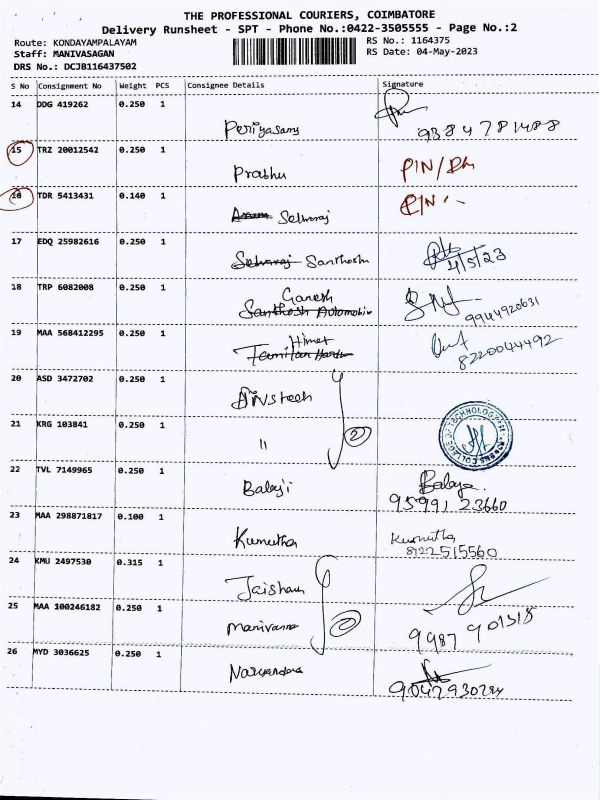 THE PROFESSIONAL COURIERS, COIMBATORE
Delivery Runsheet - SPT - Phone No.:0422-3505555 - Page No.:2
Route: KONDAYAMPALAYAM RS No.: 1164375
Staff: MANIVASAGAN RS Date: 04-May-2023
DRS No.: DCJB116437502
S No Consignment No Weight PCS Consignee Details Signature
14 DDG 419262 0.250 1
Periyasamy 9384781488
15 TRZ 20012542 0.250 1
Prabhu PIN/
16 TDR 5413431 0.140 1
Selvaraj
17 EDQ 25982616 0.250 1
Selvaraj Santhosh 4/5/23
18 TRP 6082008 0.250 1
Ganesh
Santhosh Automobi 9944920631
19 MAA 568412295 0.250 1
Himet
8220044492
20 ASD 3472702 0.250 1
21 KRG 103841 0.250 1
" 2
COLLEGE OF TECHNOLOGY
22 TVL 7149965 0.250 1
Balaji Balaji
95991 23660
23 MAA 298871817 0.100 1
Kumutha Kumutha
8122515560
24 KMU 2497530 0.315 1
Jaisham
25 MAA 100246182 0.250 1
2 9987 901515
26 MYD 3036625 0.250 1